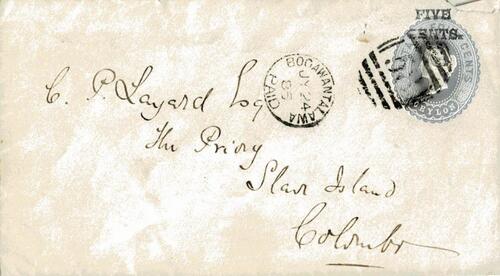 FIVE
CENTS.
CENTS
CEYLON
BOGAWANTALAWA
JY 24
85
PAID
C. P. Layard Esq
The Priory
Slave Island
Colombo